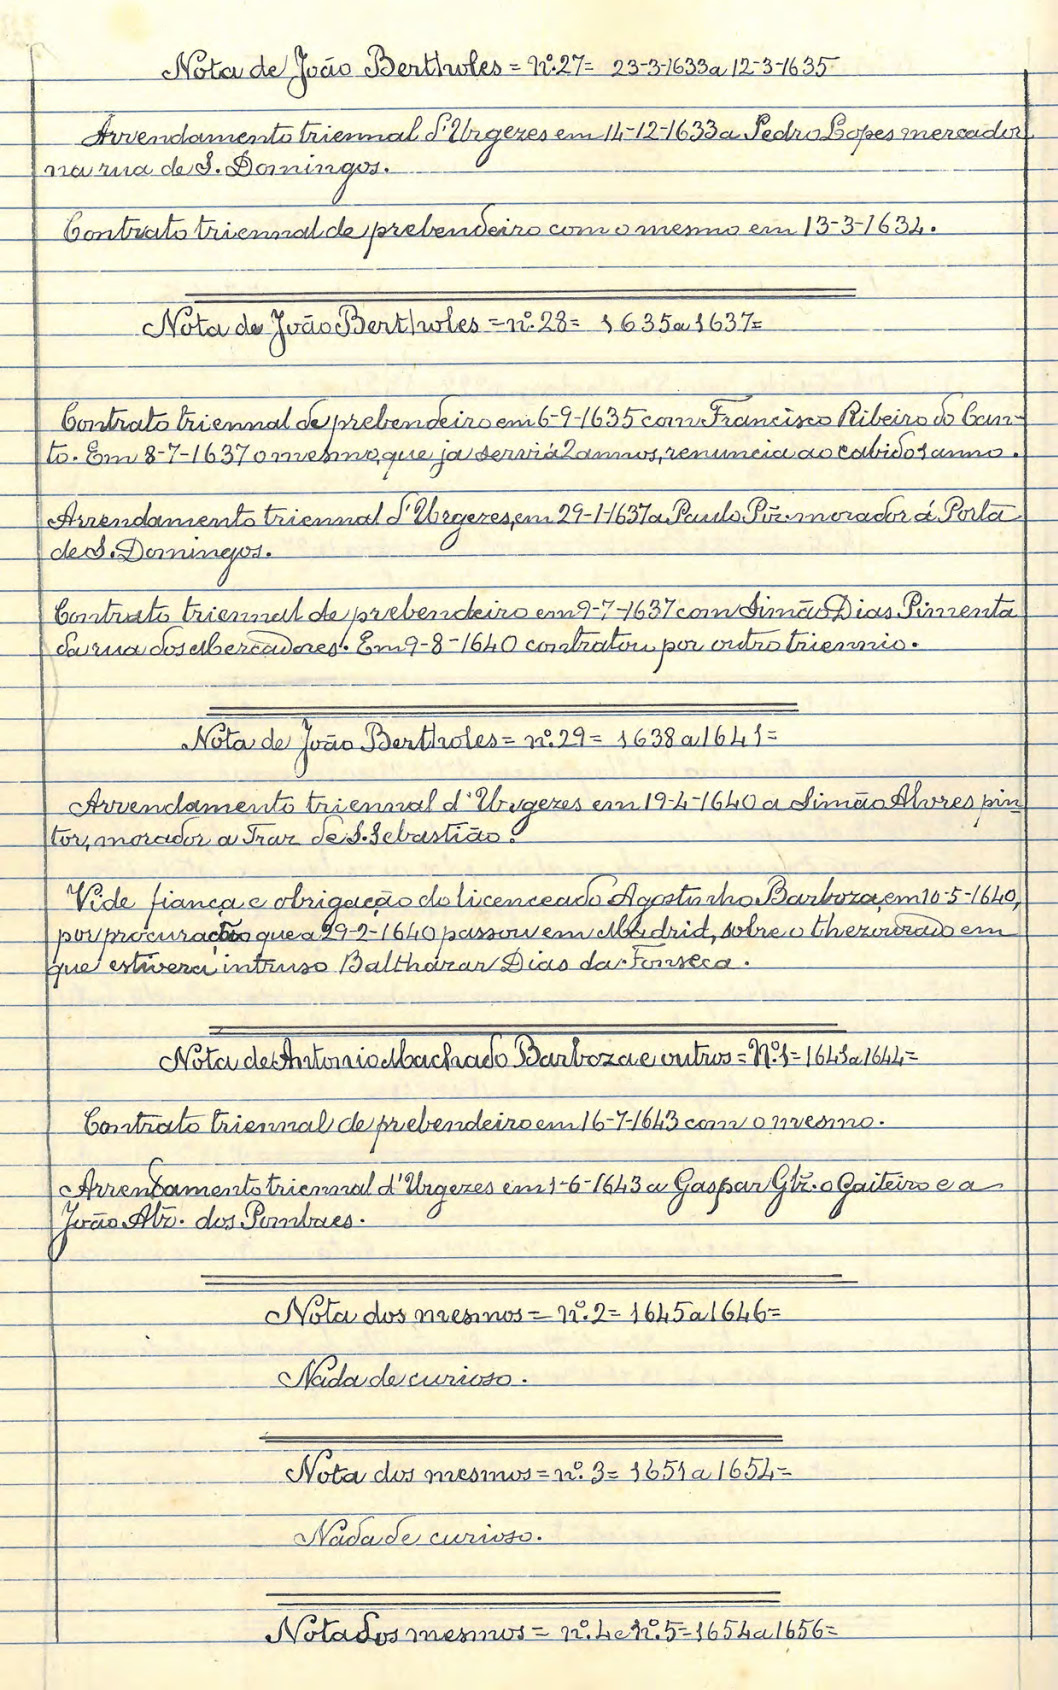 Nota de João Bertholes = nº. 27 = 23-3-1633 a 12-3-1635
Arrendamento triennal d'Urgezes em 14-12-1633 a Pedro Lopes mercador
na rua de S. Domingos.
Contrato triennal de prebendeiro com o mesmo em 13-3-1634.
Nota de João Bertholes = nº. 28 = 1635 a 1637=
Contrato triennal de prebendeiro em 6-9-1635 com Francisco Ribeiro do Can-
to. Em 8-7-1637 o mesmo, que ja servia 2 annos, renuncia ao cabido 1 anno.
Arrendamento triennal d'Urgezes, em 29-1-1637 a Paulo Pĩz. morador á Porta
de S. Domingos.
Contrato triennal de prebendeiro em 9-7-1637 com Simão Dias Pimenta
da rua dos Mercadores. Em 9-8-1640 contratou por outro triennio.
Nota de João Bertholes = nº. 29 = 1638 a 1641=
Arrendamento triennal d'Urgezes em 19-4-1640 a Simão Alvres pin
tor, morador a Traz de S. Sebastião.
Vide fiança e obrigação do licenceado Agostinho Barboza, em 10-5-1640,
por procuração que a 29-2-1640 passou em Madrid, sobre o thezourado em
que estivera intruso Balthazar Dias da Fonseca.
Nota de Antonio Machado Barboza e outros = Nº. 1 = 1641 a 1644=
Contrato triennal de prebendeiro em 16-7-1643 com o mesmo.
Arrendamento triennal d'Urgezes em 1-6-1643 a Gaspar Glz̃. o Gaiteiro e a
João Alz̃. dos Pombaes.
Nota dos mesmos = nº. 2 = 1645 a 1646=
Nada de curioso.
Nota dos mesmos = nº. 3 = 1651 a 1654=
Nada de curioso.
Nota dos mesmos = nº. 4 e nº. 5 = 1654 a 1656=